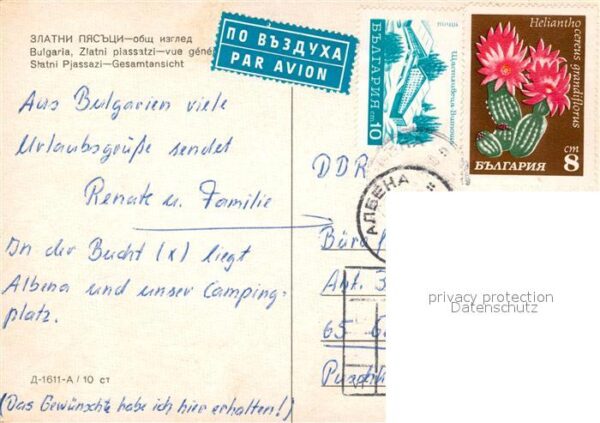 ЗЛАТНИ ПЯСЪЦИ—общ изглед
Bulgaria, Zlatni piassatzi—vue géné
Slatni Pjassazi—Gesamtansicht
ПО ВЪЗДУХА
PAR AVION
БЪЛГАРИЯ
поща
Щастливеца Витоша
ст 10
Heliantho
cereus grandiflorus
БЪЛГАРИЯ
8 ст
АЛБЕНА
Aus Bulgarien viele
Urlaubsgrüße sendet
Renate u. Familie
In der Bucht (x) liegt
Albena und unser Camping-
platz.
Д-1611-А / 10 ст
(Das Gewünschte habe ich hier erhalten!)
DDR
Büro f
65 G
privacy protection
Datenschutz